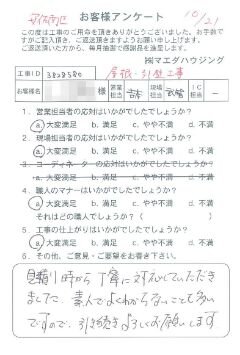 安佐南区
お客様アンケート
10/21
この度は工事のご用命を頂きありがとうございました。お手数で
すがご記入頂き、ご返送頂きますようお願い申し上げます。
ご返送頂いた方から、毎月抽選で感謝品を進呈します。
㈱マエダハウジング
工事ID 3828580 屋根・外壁工事
お客様名 様 営業担当 現場担当
1. 営業担当者の応対はいかがでしたでしょうか?
a. 大変満足 b. 満足 c. やや不満 d. 不満
2. 現場担当者の応対はいかがでしたでしょうか?
a. 大変満足 b. 満足 c. やや不満 d. 不満
3. コーディネーターの応対はいかがでしたでしょうか?
a. 大変満足 b. 満足 c. やや不満 d. 不満
4. 職人のマナーはいかがでしたでしょうか?
a. 大変満足 b. 満足 c. やや不満 d. 不満
それはどの職人でしたか?( )
5. 工事の仕上がりはいかがでしたでしょうか?
a. 大変満足 b. 満足 c. やや不満 d. 不満
6. その他、ご意見・ご要望をお書き下さい。
見積り時から丁寧に対応していただき
ました。素人でよくわからないことも多い
ですので、引き続きよろしくお願いします